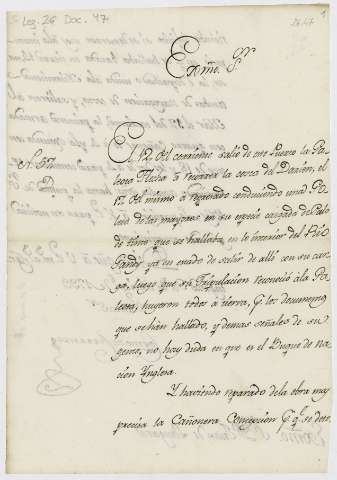 Leg. 26 Doc. 47
1
Exmo. Sr.
El 12 del corriente salio de este Puerto la Ga-
leota Flecha a recorrer la costa del Darien, el
17 del mismo a regresado conduciendo una Ba-
landra de las mayores en su especie cargada de Palo
de tinte que se hallava en lo interior del Rio
Gandy ya en estado de salir de alli con su car-
ga, luego que su Tripulacion reconoció a la Ga-
leota, huyeron todos a tierra, y los documentos
que se han hallado, y demas señales de su
genero, no hay duda en que es el Buque de na-
cion Ynglesa.
Y haviendo reparado de la obra muy
precisa la Cañonera Concepcion que se dete-